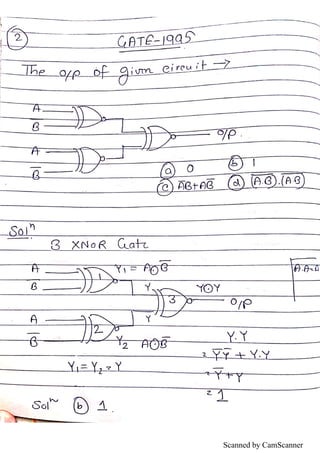 ②
GATE-1995
The o/p of given circuit →
A
B̅
o/p.
A
B̅
ⓐ 0 ⓑ 1
ⓒ A̅B+AB̅ ⓓ (A̅.B̅).(A̅B̅)
Solⁿ
3 XNOR Gate
A Y₁ = A⊙B̅
B 1
Y Y⊙Y
3 o/p
A Y
2
B̅ Y₂ A⊙B̅
Y₁ = Y₂ = Y
Y.Y
= Y̅Y̅ + Y.Y
= Y̅ + Y
= 1
Solⁿ ⓑ 1.
Scanned by CamScanner